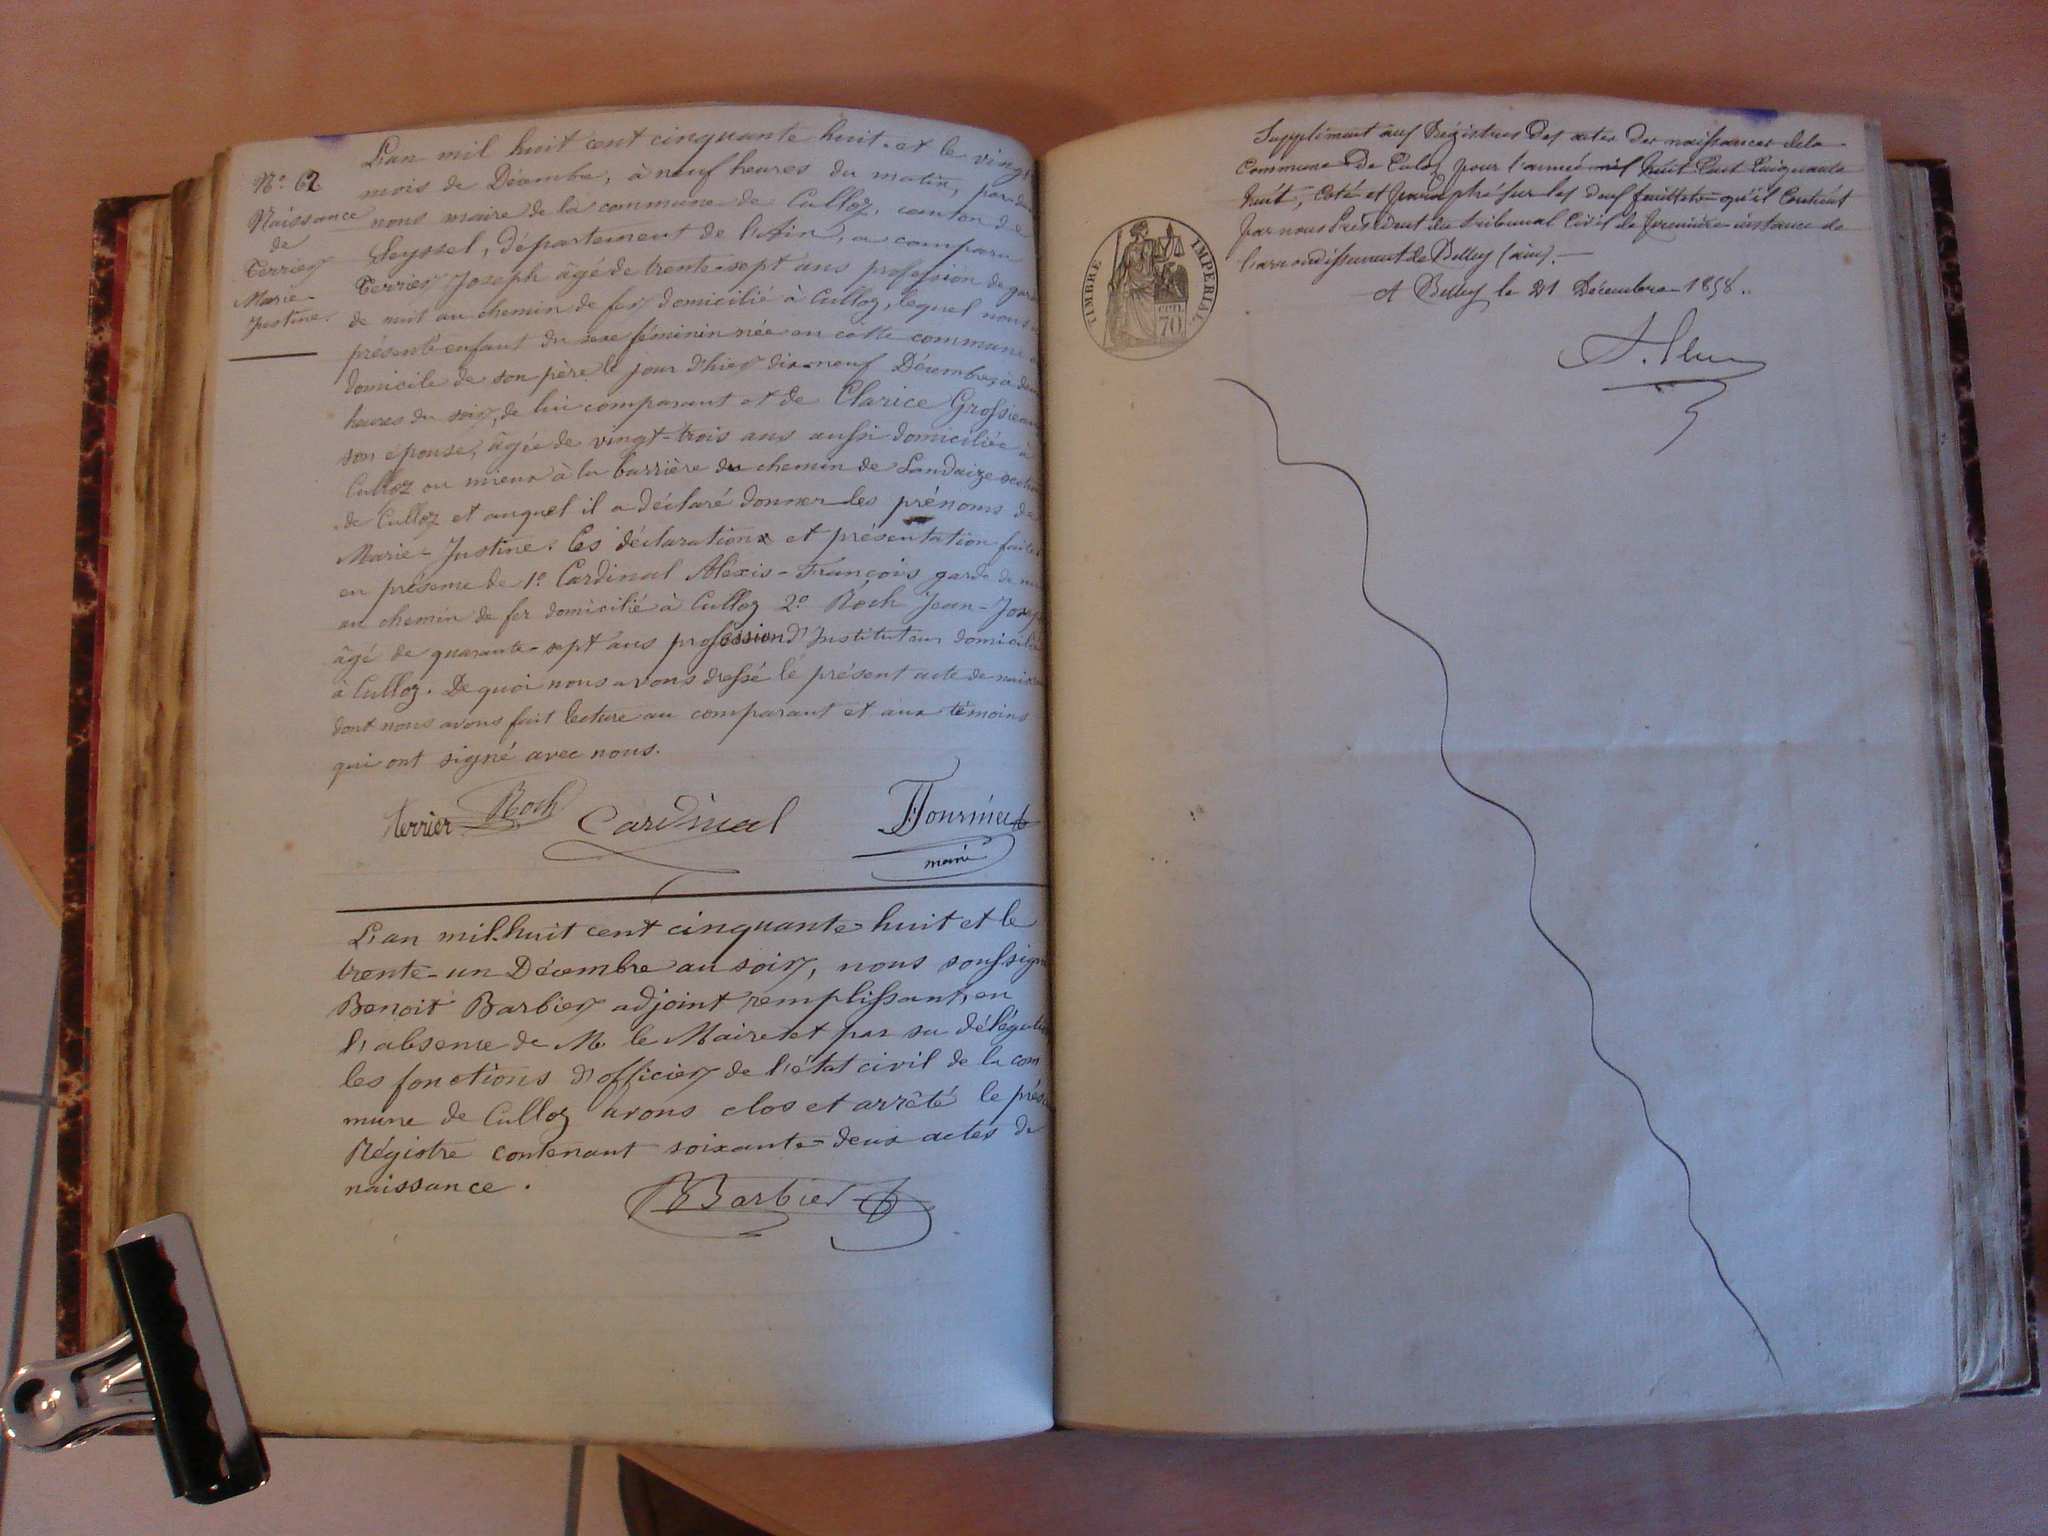 N.º 62
Naissance
de
Terrier
Marie-
Justine.
L'an mil huit cent cinquante huit et le vingt
mois de Décembre, à neuf heures du matin, par devant
nous maire de la commune de Culloz, canton de
Seyssel, département de l'Ain, a comparu
Terrier Joseph âgé de trente-sept ans profession de garde
de nuit au chemin de fer domicilié à Culloz, lequel nous a
présenté enfant du sexe féminin née en cette commune
domicile de son père le jour d'hier dix-neuf Décembre, à
heures du soir, de lui comparant et de Clarice Grosjean
son épouse, âgée de vingt-trois ans aussi domiciliée à
Culloz ou mieux à la barrière du chemin de Landaize section
de Culloz et auquel il a déclaré donner les prénoms de
Marie-Justine. Ces déclarations et présentation faites
en présence de 1º Cardinal Alexis-François garde de nuit
au chemin de fer domicilié à Culloz 2º Roch Jean-Joseph
âgé de quarante-sept ans profession d'Instituteur domicilié
à Culloz. De quoi nous avons dressé le présent acte de naissance
dont nous avons fait lecture au comparant et aux témoins
qui ont signé avec nous.
Terrier Roch Cardinal Fournier
maire
L'an mil huit cent cinquante-huit et le
trente-un Décembre au soir, nous soussigné
Benoit Barbier adjoint remplissant, en
l'absence de M. le Maire et par sa délégation
les fonctions d'officier de l'état civil de la com
mune de Culloz avons clos et arrêté le présent
Régistre contenant soixante-deux actes de
naissance.
B Barbier
TIMBRE IMPERIAL
CEN.
70
Supplément aux Régistres des actes de naissances de la
Commune de Culoz pour l'année mil huit Cent Cinquante
huit, Coté et Paraphé sur les deux feuillets qu'il Contient
par nous Président du tribunal Civil de première instance de
l'arrondissement de Belley (ain).
A Belley le 21 Décembre 1858.